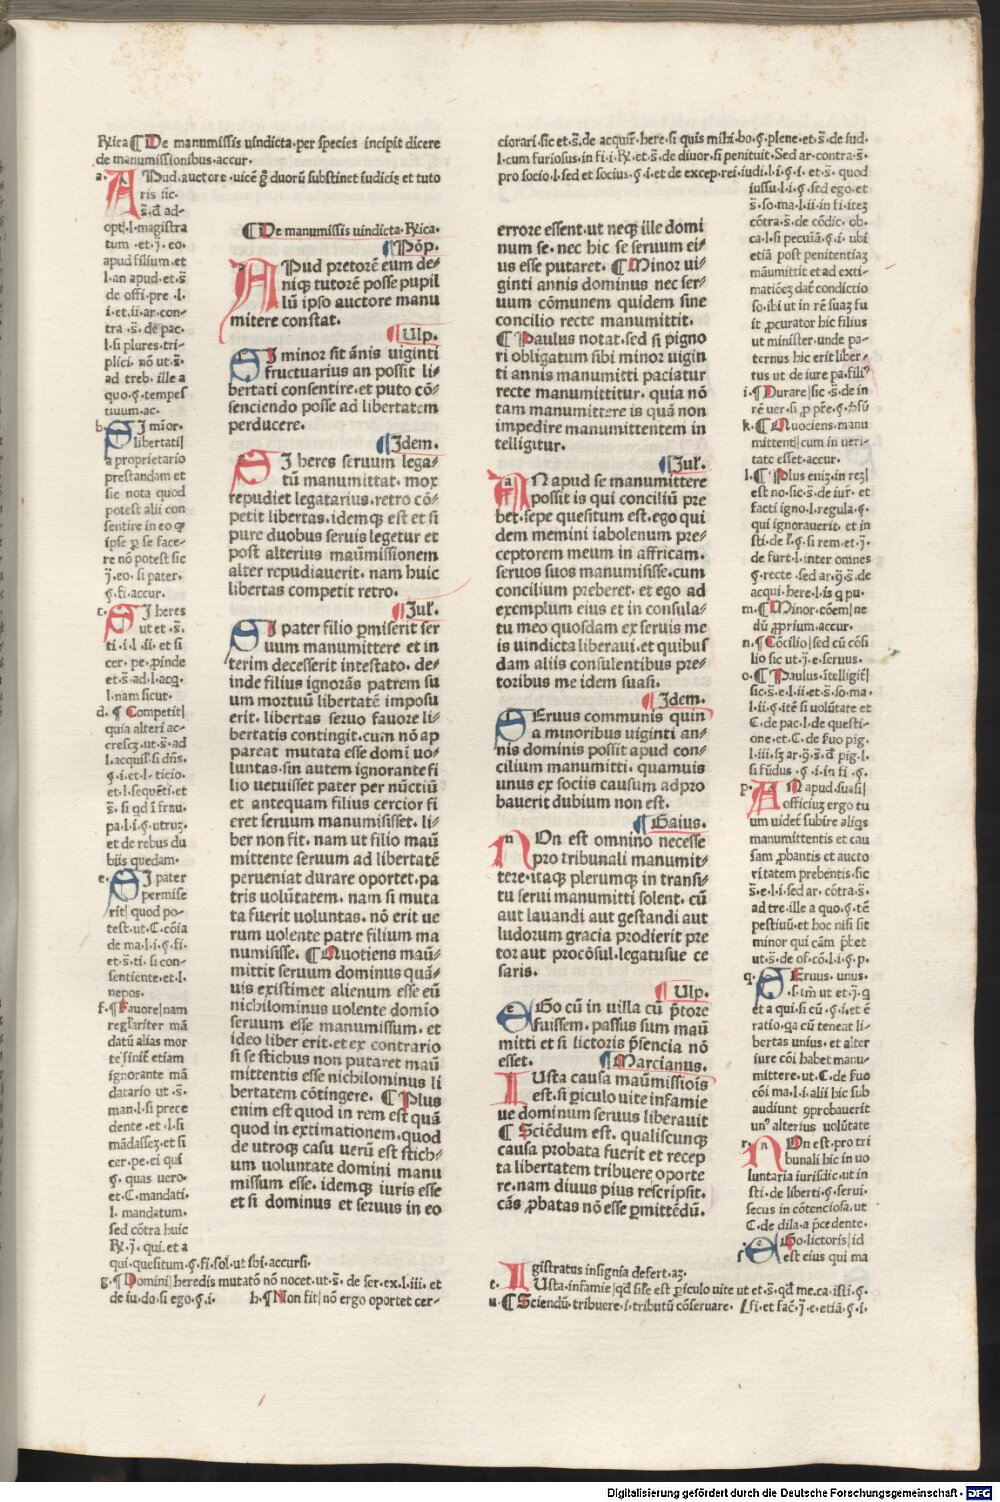 Rxica ¶ De manumissis uindicta·per species incipit dicere
de manumissionibus·accur·
a· APud·auctore·uicē gͥ duorū substinet iudicis et tuto
ris sic·
s̄·d̄ ad-
opt·l·magistra
tum·et·j·eo·
apud filium·et
l·an apud·et·s̄
de offi·pre·l·
i·et·ii·ar·con-
tra·s̄·de pac·
l·si plures·tri-
plici·nō ut·s̄·
ad treb·ille a
quo·ꝯ·tempes
tiuum·ac·
b· SI mior·
libertati|
a proprietario
prestandam et
sic nota quod
potest alii con
sentire in eo ꝙ
ipse ꝑ se face-
re nō potest sic
j·eo·si pater·
ꝯ·fi·accur·
c· SI heres
ut et·s̄·
ti·i·l·ii·et si
cer·pe·ꝓinde
et·s̄·ad·l·acq·
l·nam sicut·
d· ¶ Competit|
quia alteri ac-
crescꝫ·ut·s̄·ad
l·acquis·si dn̄s·
ꝯ·i·et·l·ticio·
et·l·sequēti·et
s̄·si qd ī frau·
pa·l·i·ꝯ·utruꝫ·
et de rebus du
biis quedam·
e· SI pater
permise
rit| quod po-
test·ut·C·cōia
de ma·l·i·ꝯ·fi·
et·s̄·ti·si con-
sentiente·et·l·
nepos·
f·¶ Fauore|nam
regl'ariter mā
datū alias mor
te finit̄ etiam
ignorante mā
datario ut·s̄·
man·l·si prece
dente·et·l·si
mādassez·et si
cer·pe·ei qui
ꝯ·quas uero·
et·C·mandati·
l·mandatum·
sed cōtra huic
Rx·j·qui·et a
qui·quesitum·ꝯ·fi·sol'·ut sbi·accursi·
g·¶ Domini|heredis mutatō nō nocet·ut·s̄·de ser·ex·l·iii·et
de iu·do·si ego·ꝯ·i· h·¶ Non fit|nō ergo oportet cer-
¶ De manumissis uindicta·Rxica·
¶ Pōp·
APud pretorē eum de-
niqꝫ tutorē posse pupil
lū ipso auctore manu
mitere constat·
¶ Ulp·
SI minor sit ānis uiginti
fructuarius an possit li-
bertati consentire·et puto cō-
senciendo posse ad libertatem
perducere·
¶ Idem·
SI heres seruum lega-
tū manumittat·mox
repudiet legatarius·retro cō-
petit libertas·idemqꝫ est et si
pure duobus seruis legetur et
post alterius maūmissionem
alter repudiauerit·nam huic
libertas competit retro·
¶ Iul'·
SI pater filio ꝑmiserit ser
uum manumittere et in
terim decesserit intestato·de-
inde filius ignorās patrem su
um mortuū libertatē imposu
erit·libertas seruo fauore li-
bertatis contingit·cum nō ap
pareat mutata esse domi uo-
luntas·sin autem ignorante fi
lio uetuisset pater per nūctiū
et antequam filius cercior fi
eret seruum manumisisset·li-
ber non fit·nam ut filio maū
mittente seruum ad libertatē
perueniat durare oportet·pa
tris uolūtatem·nam si muta
ta fuerit uoluntas·nō erit ue
rum uolente patre filium ma
numisisse· ¶ Quotiens maū-
mittit seruum dominus quā-
uis existimet alienum esse eū
nichilominus uolente domio
seruum esse manumissum·et
ideo liber erit·et ex contrario
si se stichus non putaret maū
mittentis esse nichilominus li
bertatem cōtingere· ¶ Plus
enim est quod in rem est quā
quod in extimationem·quod
de utroqꝫ casu uerū est stich-
um uoluntate domini manu
missum esse·idemqꝫ iuris esse
et si dominus et seruus in eo
ciorari·sic et·s̄·de acquir̄·here·si quis mihi·bo·ꝯ·plene·et·s̄·de iud-
l·cum furiosus·in fi·i·Rx·et·s̄·de diuor·si penituit·Sed ar·contra·s̄·
pro socio·l·sed et socius·ꝯ·i·et de excep·rei·iudi·l·i·ꝯ·i·et·s̄·quod
iussu·l·i·ꝯ·sed ego·et
s̄·so·ma·l·ii·in fi·iteꝫ
cōtra·s̄·de cōdic·ob·
ca·l·si pecuīa·ꝯ·i·ubi
etiā post penitentiaꝫ
māumittit et ad exti-
matiōeꝫ dat̄ condictio
so·ibi ut in rē suaꝫ fu
it ꝓcurator hic filius
ut minister·unde pa-
ternus hic erit liber-
tus ut de iure pa·filiꝰ
i·¶ Durare|sic·s̄·de in
rē uer·si ꝓ pr̄e·ꝯ·h̄sū
k·¶ Quociens·manu
mittent|cum in ueri-
tate esset·accur·
l·¶ Plus eniꝫ·in reꝫ|
est no·sic·s̄·de iur̄·et
facti igno·l·regula·ꝯ·
qui ignorauerit·et in
sti·de l'·ꝯ·si rem·et·j·
de furt·l·inter omnes
ꝯ·recte·sed ar·ꝯ·s̄·de
acqui·here·l·is q pu·
m·¶ Minor·cōem|ne
dū ꝓprium·accur·
n·¶ Cōcilio|sed cū cōsi
lio sic ut·j·e·seruus·
o·¶ Paulus·ītelligit|
sic·s̄·e·l·ii·et·s̄·so·ma·
l·ii·ꝯ·itē si uolūtate et
C·de pac·l·de questi-
one·et·C·de fuo pig·
l·iii·sꝫ ar·ꝯ·s̄·d̄ pig·l·
si fūdus·ꝯ·i·in fi·ꝯ·
p· AN apud·suasi|
officiuꝫ ergo tu
um uidet̄ subire aliqs
manumittentis et cau
sam ꝓbantis et aucto
ritatem prebentis·sic
s̄·e·l·i·sed ar·cōtra·s̄·
ad tre·ille a quo·ꝯ·tē
pestiuū·et hoc nisi sit
minor qui cām p̄bet
ut·s̄·de of·cō·l·i·ꝯ·p·
q· SEruus·unus·
·s·im̄ ut et·j·q
et a qui·si cū·ꝯ·i·et ē
ratio·qa cū teneat li-
bertas unius·et alter
iure cōi habet manu-
mittere·ut·C·de fuo
cōi ma·l·i·alii hic sub
audiunt ꝯprobauerit
unꝰ alterius uolūtate
r· NOn est·pro tri
bunali hic in uo
luntaria iurisdic·ut in
sti·de liberti·ꝯ·serui·
secus in cōtenciosa·ut
C·de dila·a p̄cedente·
s· EGo·lictoris|id
est eius qui ma
gistratus insignia defert·aꝫ·
t· IUsta·infamie|qd sile est ꝑiculo uite ut et·s̄·qd me·ca·isti·ꝯ·
u·¶ Sciendū·tribuere·i·tributū cōseruare· l·si et fac̄·j·e·etiā·ꝯ·i·
errore essent·ut neqꝫ ille domi
num se·nec hic se seruum ei-
us esse putaret· ¶ Minor ui-
ginti annis dominus nec ser-
uum cōmunem quidem sine
concilio recte manumittit·
¶ Paulus notat·sed si pigno
ri obligatum sibi minor uigin
ti annis manumitti paciatur
recte manumittitur·quia nō
tam manumittere is quā non
impedire manumittentem in
telligitur·
¶ Iul'·
AN apud se manumittere
possit is qui conciliū pre
bet·sepe quesitum est·ego qui
dem memini iabolenum pre-
ceptorem meum in affricam·
seruos suos manumisisse·cum
concilium preberet·et ego ad
exemplum eius et in consula-
tu meo quosdam ex seruis me
is uindicta liberaui·et quibus
dam aliis consulentibus pre-
toribus me idem suasi·
¶ Idem·
SEruus communis quin
a minoribus uiginti an-
nis dominis possit apud con-
cilium manumitti·quamuis
unus ex sociis causum adpro
bauerit dubium non est·
¶ Gaius·
NOn est omnino necesse
pro tribunali manumit-
tere·itaqꝫ plerumqꝫ in transi-
tu serui manumitti solent·cū
aut lauandi aut gestandi aut
ludorum gracia prodierit pre
tor aut procōsul·legatusue ce
saris·
¶ Ulp·
EGo cū in uilla cū p̄tore
fuissem·passus sum maū
mitti et si lictoris p̄sencia nō
esset· ¶ Marcianus·
IUsta causa maūmissiōis
est·si ꝑiculo uite infamie
ue dominum seruus liberauit
¶ Sciēdum est·qualiscunqꝫ
causa probata fuerit et recep
ta libertatem tribuere oporte
re·nam diuus pius rescripsit·
cās ꝓbatas nō esse ꝑmittēdū·
Digitalisierung gefördert durch die Deutsche Forschungsgemeinschaft - DFG